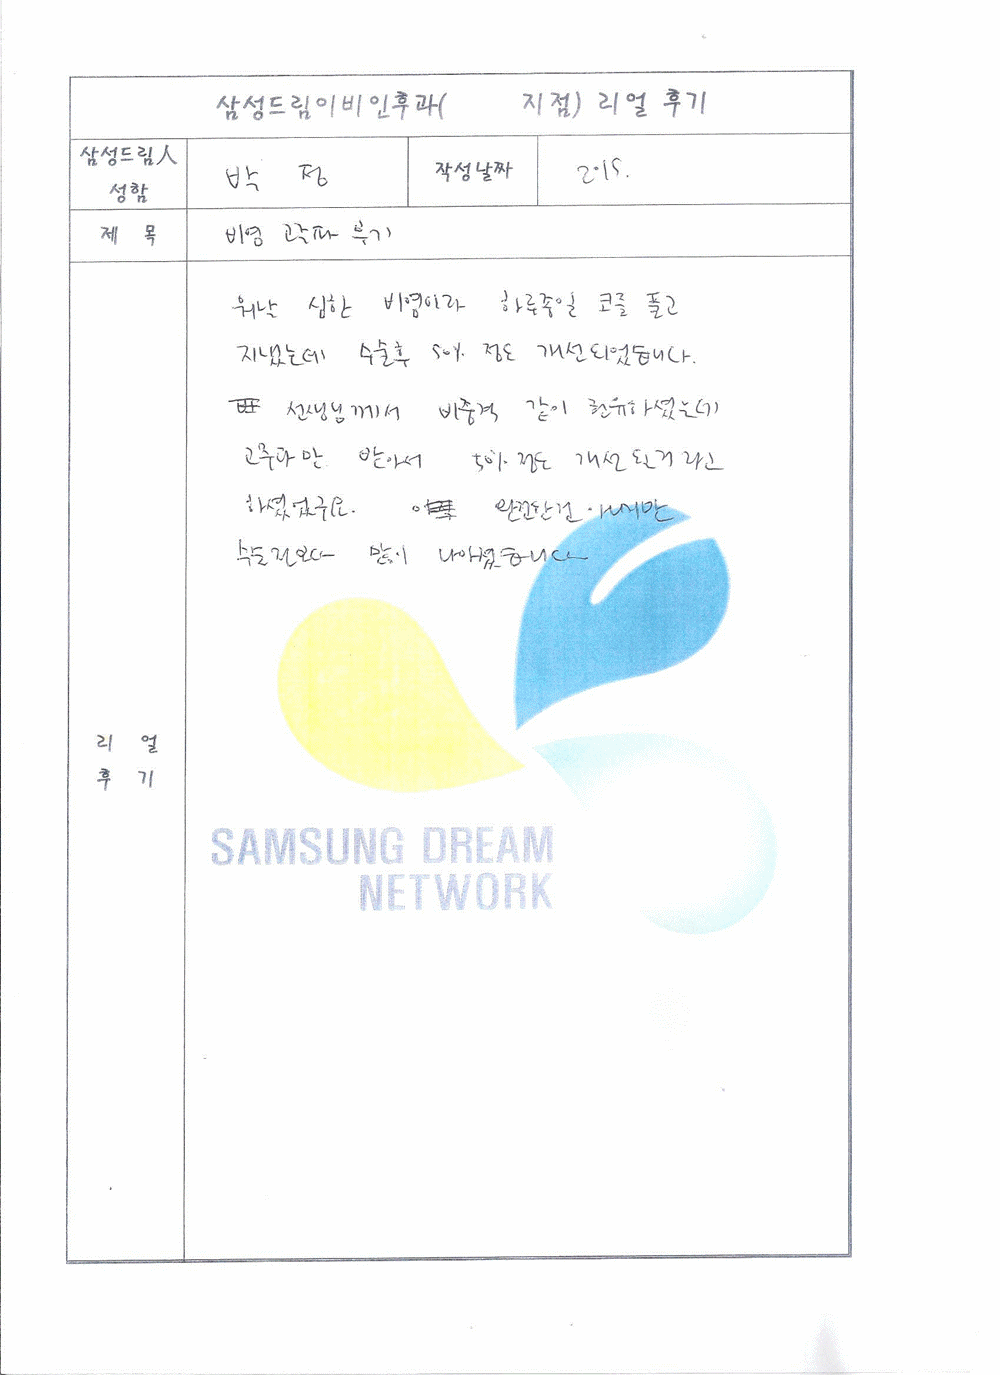 삼성드림이비인후과( 지점) 리얼 후기
삼성드림人
성함
박 정
작성날짜
2015.
제 목
비염 고주파 후기
워낙 심한 비염이라 하루종일 코를 풀고
지냈는데 수술후 50% 정도 개선되었습니다.
선생님께서 비중격 같이 권유하셨는데
고주파만 받아서 50% 정도 개선된거라고
하셨었구요. 완전한건 아니지만
수술전보다 많이 나아졌습니다
리 얼
후 기
SAMSUNG DREAM
NETWORK